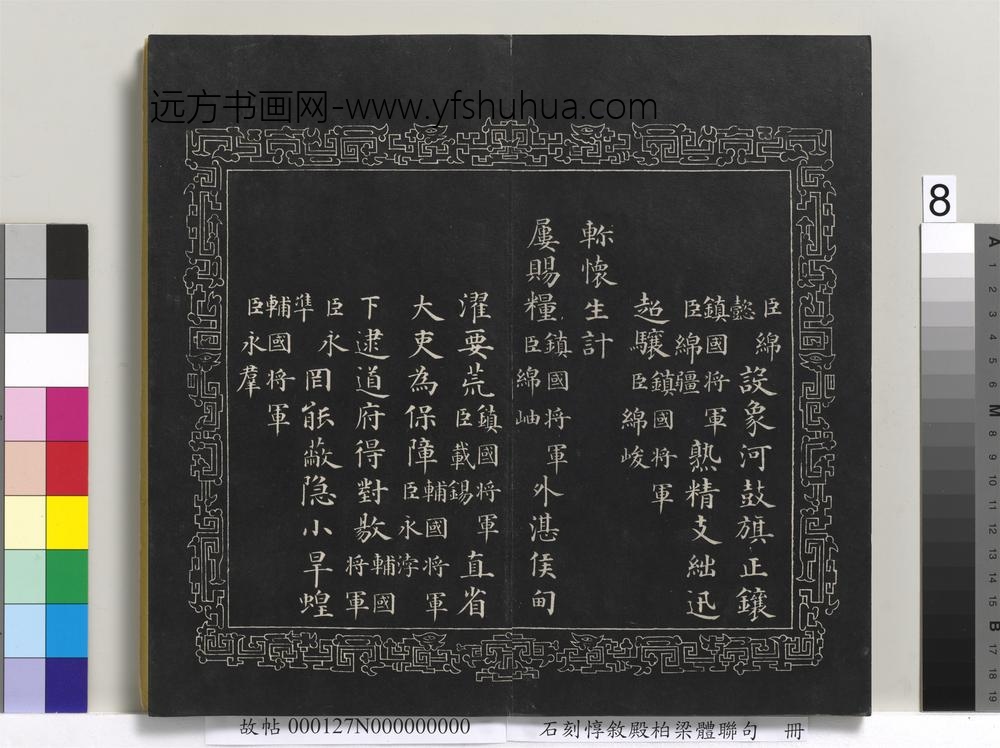 远方书画网-www.yfshuhua.com
臣綿懿設象河鼓旗正鑲
鎮國将軍臣綿疆熟精支絀迅
超驤鎮國将軍臣綿峻
軫懷生計
屢賜糧鎮國将軍臣綿岫外湛侯甸
濯要荒鎮國将軍臣載錫直省
大吏為保障輔國将軍臣永
下逮道府得對敭輔國将軍
臣永準罔能蔽隐小旱蝗
輔國将軍臣永羣
故帖 000127N000000000
石刻惇敘殿柏梁體聯句 冊
8
A 1 2 3 4 5 6 M 8 9 10 11 12 13 14 15 B 17 18 19